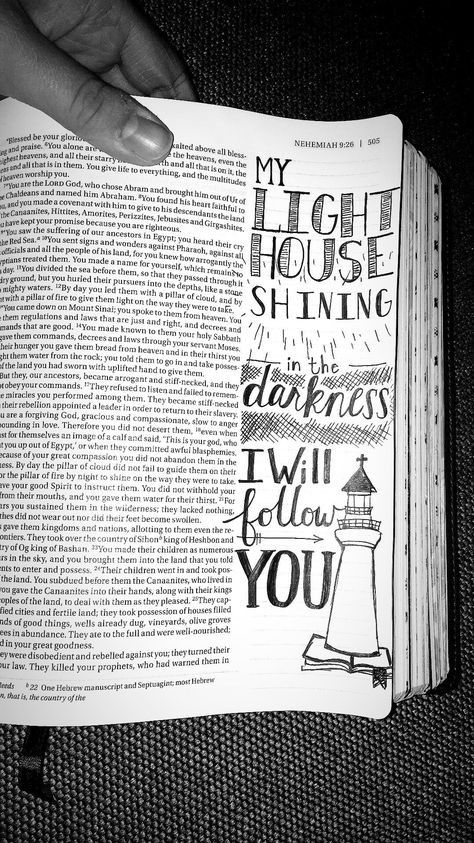 NEHEMIAH 9:26 | 505
"Blessed be your glorio
exalted above all bless-
ing and praise. ⁶You alone are
the heavens, even the
highest heavens, and all their starry
th and all that is on it, the
eas and all that is in them. You give life to everything, and the multitudes
of heaven worship you.
⁷"You are the LORD God, who chose Abram and brought him out of Ur of
he Chaldeans and named him Abraham. ⁸You found his heart faithful to
you, and you made a covenant with him to give to his descendants the land
the Canaanites, Hittites, Amorites, Perizzites, Jebusites and Girgashites.
have kept your promise because you are righteous.
⁹"You saw the suffering of our ancestors in Egypt; you heard their cry
the Red Sea. ¹⁰You sent signs and wonders against Pharaoh, against all
officials and all the people of his land, for you knew how arrogantly the
yptians treated them. You made a name for yourself, which remains to
day. ¹¹You divided the sea before them, so that they passed through it
dry ground, but you hurled their pursuers into the depths, like a stone
mighty waters. ¹²By day you led them with a pillar of cloud, and by
t with a pillar of fire to give them light on the way they were to take.
"You came down on Mount Sinai; you spoke to them from heaven. You
e them regulations and laws that are just and right, and decrees and
mands that are good. ¹⁴You made known to them your holy Sabbath
gave them commands, decrees and laws through your servant Moses.
their hunger you gave them bread from heaven and in their thirst you
ght them water from the rock; you told them to go in and take posses-
of the land you had sworn with uplifted hand to give them.
But they, our ancestors, became arrogant and stiff-necked, and they
ot obey your commands. ¹⁷They refused to listen and failed to remem-
e miracles you performed among them. They became stiff-necked
their rebellion appointed a leader in order to return to their slavery.
u are a forgiving God, gracious and compassionate, slow to anger
bounding in love. Therefore you did not desert them, ¹⁸even when
ast for themselves an image of a calf and said, 'This is your god, who
t you up out of Egypt,' or when they committed awful blasphemies.
ecause of your great compassion you did not abandon them in the
ess. By day the pillar of cloud did not fail to guide them on their
or the pillar of fire by night to shine on the way they were to take.
ve your good Spirit to instruct them. You did not withhold your
from their mouths, and you gave them water for their thirst. ²¹For
ars you sustained them in the wilderness; they lacked nothing,
thes did not wear out nor did their feet become swollen.
gave them kingdoms and nations, allotting to them even the re-
ontiers. They took over the country of Sihon ᵇ king of Heshbon and
try of Og king of Bashan. ²³You made their children as numerous
ars in the sky, and you brought them into the land that you told
ents to enter and possess. ²⁴Their children went in and took pos-
of the land. You subdued before them the Canaanites, who lived in
you gave the Canaanites into their hands, along with their kings
eoples of the land, to deal with them as they pleased. ²⁵They cap-
ified cities and fertile land; they took possession of houses filled
nds of good things, wells already dug, vineyards, olive groves
ees in abundance. They ate to the full and were well-nourished;
d in your great goodness.
ey were disobedient and rebelled against you; they turned their
our law. They killed your prophets, who had warned them in
Reeds ᵇ 22 One Hebrew manuscript and Septuagint; most Hebrew
n, that is, the country of the
MY
LIGHT
HOUSE
SHINING
in the
darkness
I Will
follow
YOU